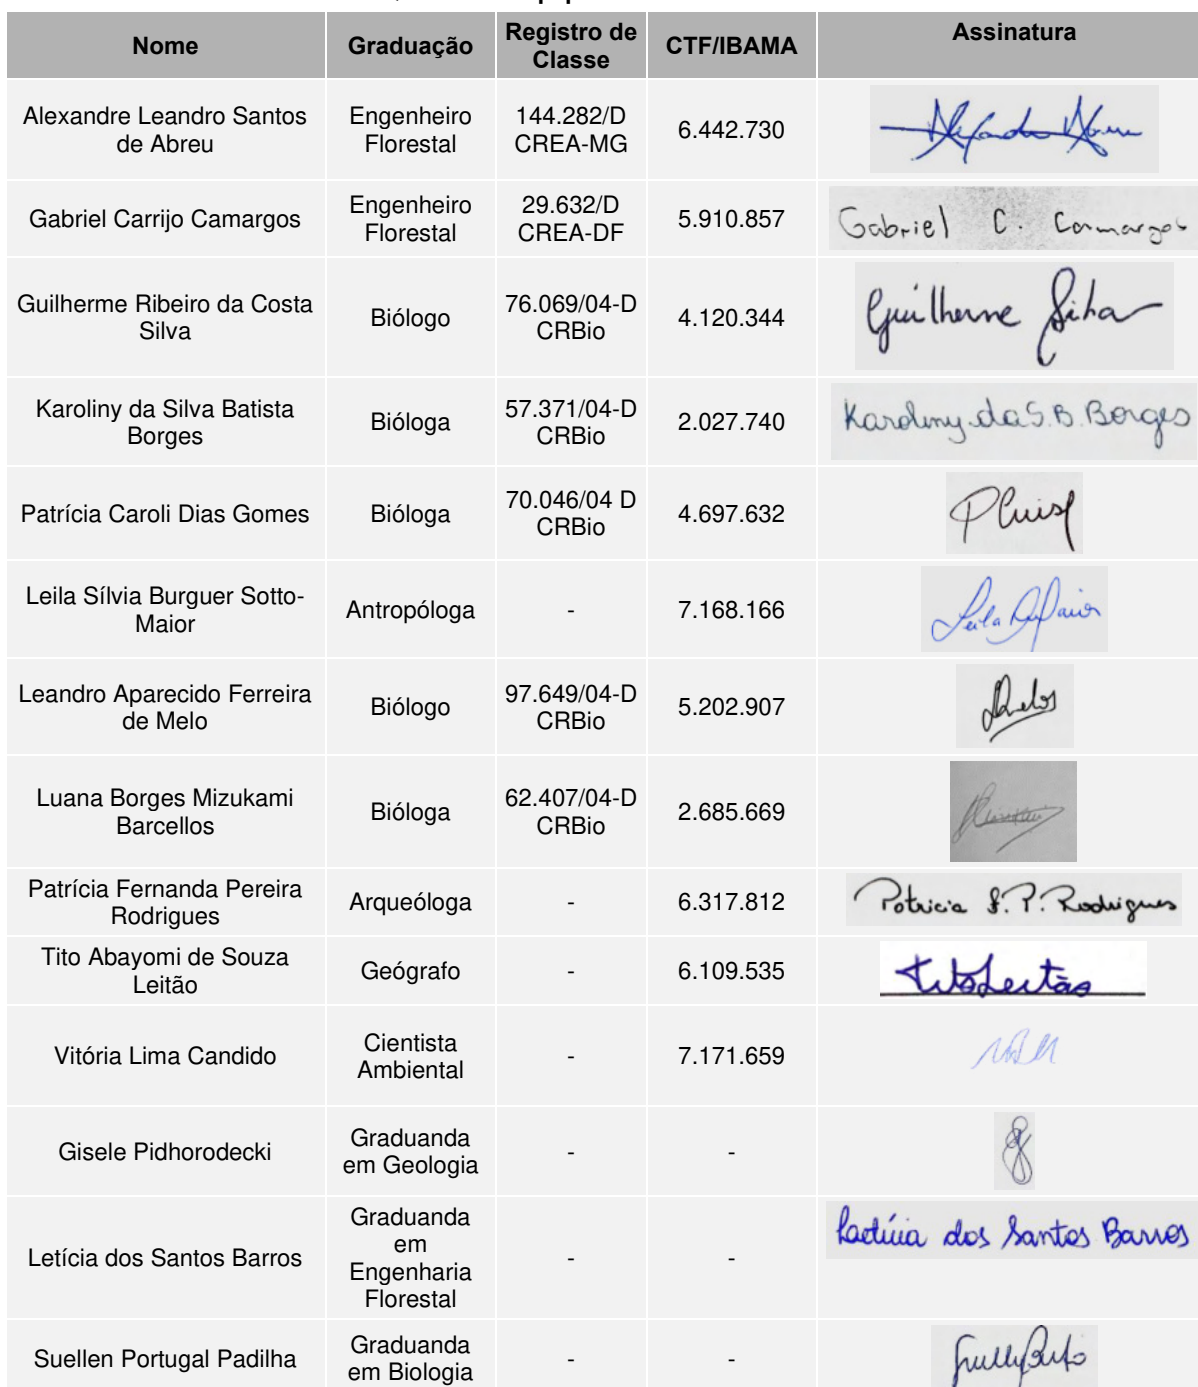 Nome Graduação Registro de Classe CTF/IBAMA Assinatura
Alexandre Leandro Santos de Abreu Engenheiro Florestal 144.282/D CREA-MG 6.442.730
Gabriel Carrijo Camargos Engenheiro Florestal 29.632/D CREA-DF 5.910.857 Gabriel C. Camargos
Guilherme Ribeiro da Costa Silva Biólogo 76.069/04-D CRBio 4.120.344 Guilherme Silva
Karoliny da Silva Batista Borges Bióloga 57.371/04-D CRBio 2.027.740 Karoliny da S. B. Borges
Patrícia Caroli Dias Gomes Bióloga 70.046/04 D CRBio 4.697.632
Leila Sílvia Burguer Sotto-Maior Antropóloga - 7.168.166
Leandro Aparecido Ferreira de Melo Biólogo 97.649/04-D CRBio 5.202.907
Luana Borges Mizukami Barcellos Bióloga 62.407/04-D CRBio 2.685.669
Patrícia Fernanda Pereira Rodrigues Arqueóloga - 6.317.812 Patricia F. P. Rodrigues
Tito Abayomi de Souza Leitão Geógrafo - 6.109.535 Tito Leitão
Vitória Lima Candido Cientista Ambiental - 7.171.659
Gisele Pidhorodecki Graduanda em Geologia - -
Letícia dos Santos Barros Graduanda em Engenharia Florestal - - Laetícia dos Santos Barros
Suellen Portugal Padilha Graduanda em Biologia - -